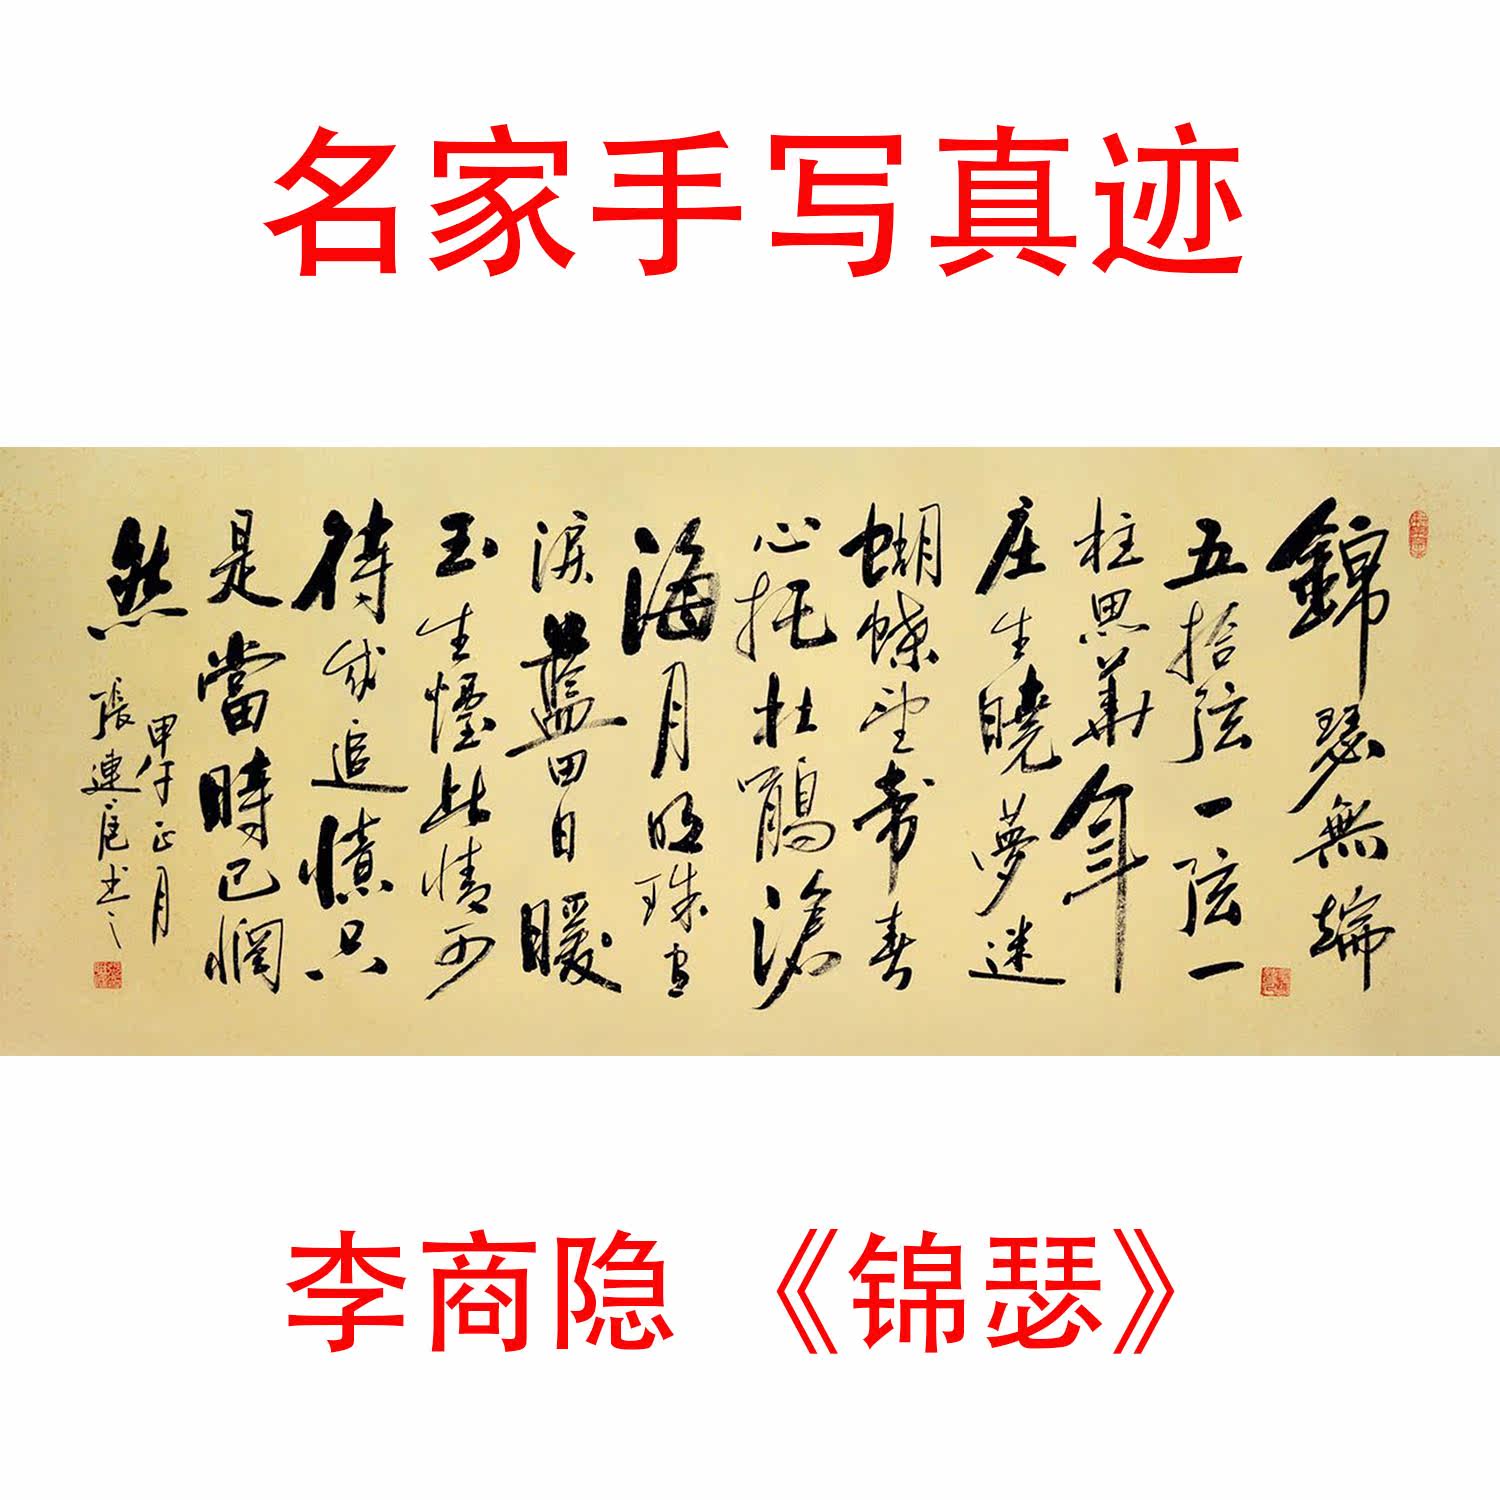 名家手写真迹
錦瑟無端
五拾弦一弦一
柱思華年
庄生曉夢迷
蝴蝶望帝春
心托杜鵑滄
海月明珠有
淚藍田日暖
玉生煙此情可
待成追憶只
是當時已惘
然
甲午正月
張連书
李商隐《锦瑟》